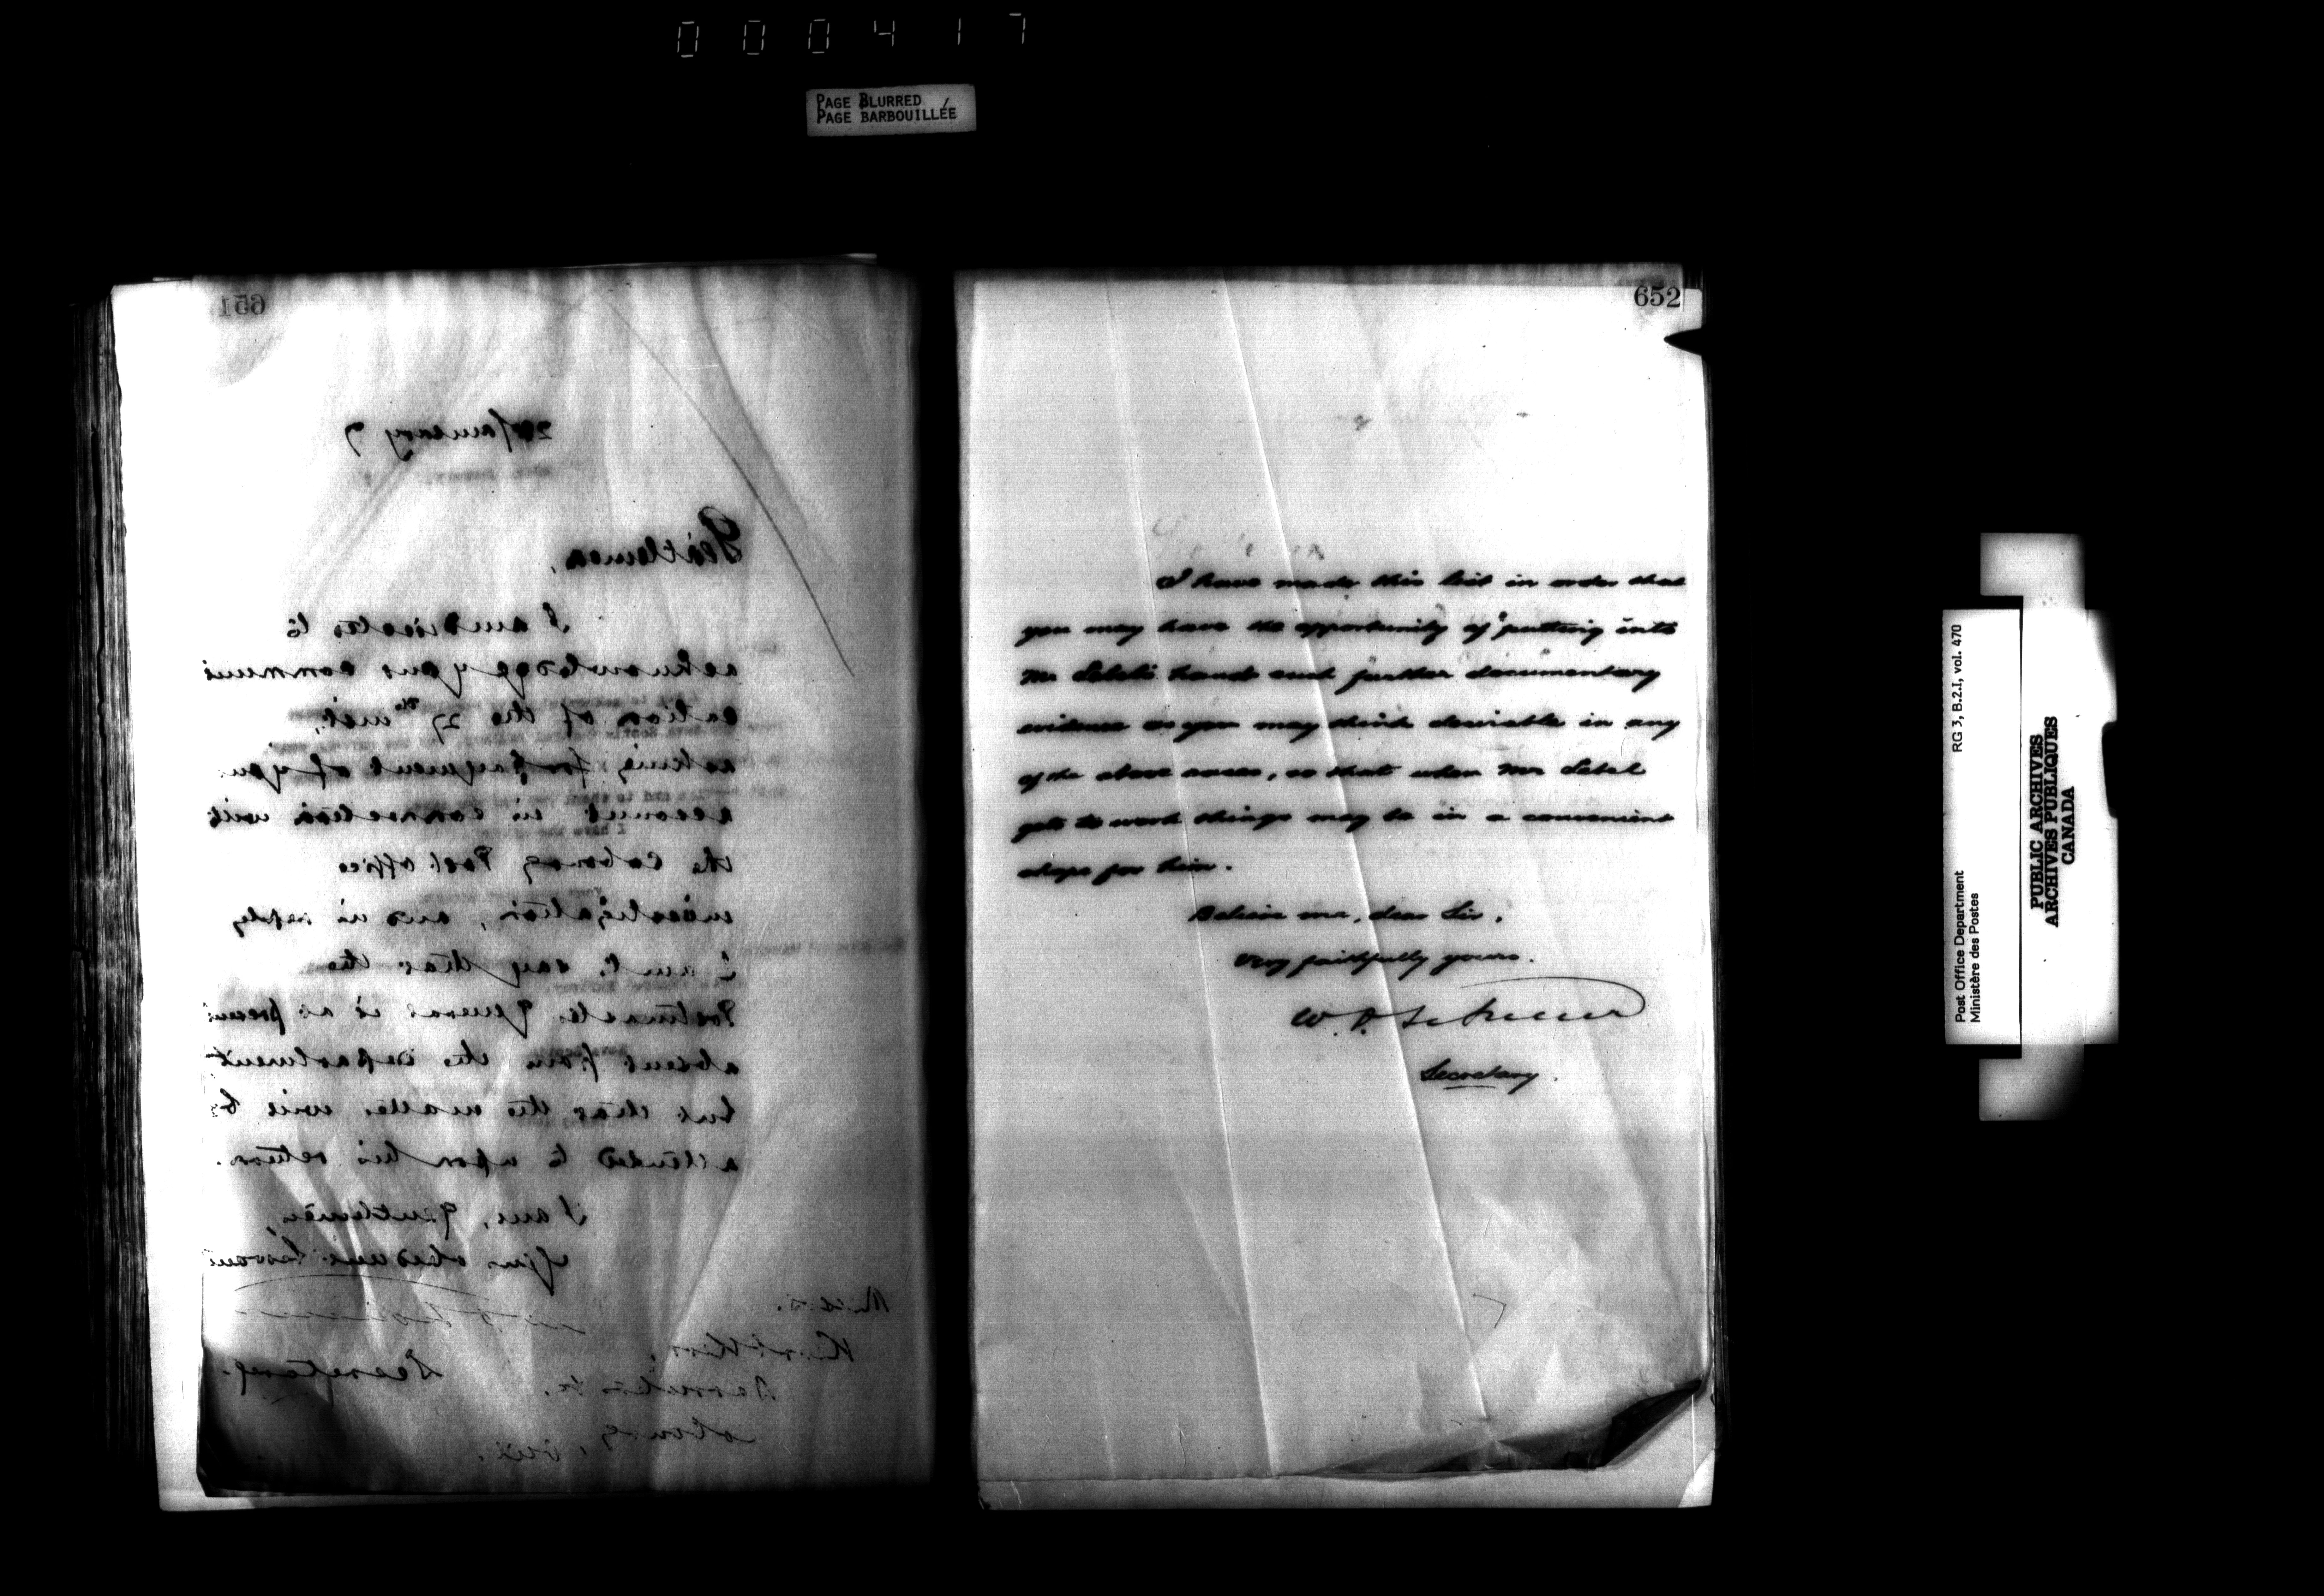 000417
PAGE BLURRED
PAGE BARBOUILLÉE
651
January 7
Gentlemen,
I am directed to
acknowledge your communi
cation of the 27th inst,
asking for payment of your
account in connection with
the Cobourg Post office
investigation, and in reply
I am to say that the
Postmaster General is at present
absent from the department
but that the matter will be
attended to upon his return.
I am, gentlemen,
Your obedient Servant
Secretary.
Messrs.
Kerr
Barristers &c.
Cobourg, Ont.
652
I have made this list in order that
you may have the opportunity of putting into
Mr Lebel's hands such further documentary
evidence as you may think desirable in any
of the above cases, so that when Mr Lebel
gets to work things may be in a convenient
shape for him.
Believe me, dear Sir,
Very faithfully yours.
W. D.
Secretary.
Post Office Department RG 3, B.2.I, vol. 470
Ministère des Postes
PUBLIC ARCHIVES
ARCHIVES PUBLIQUES
CANADA